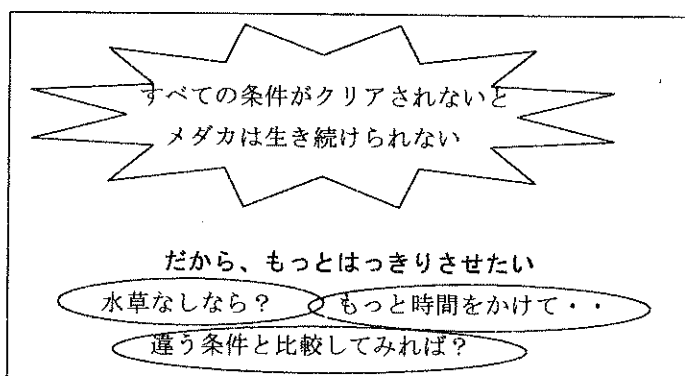 すべての条件がクリアされないと
メダカは生き続けられない
だから、もっとはっきりさせたい
水草なしなら？
もっと時間をかけて・・
違う条件と比較してみれば？